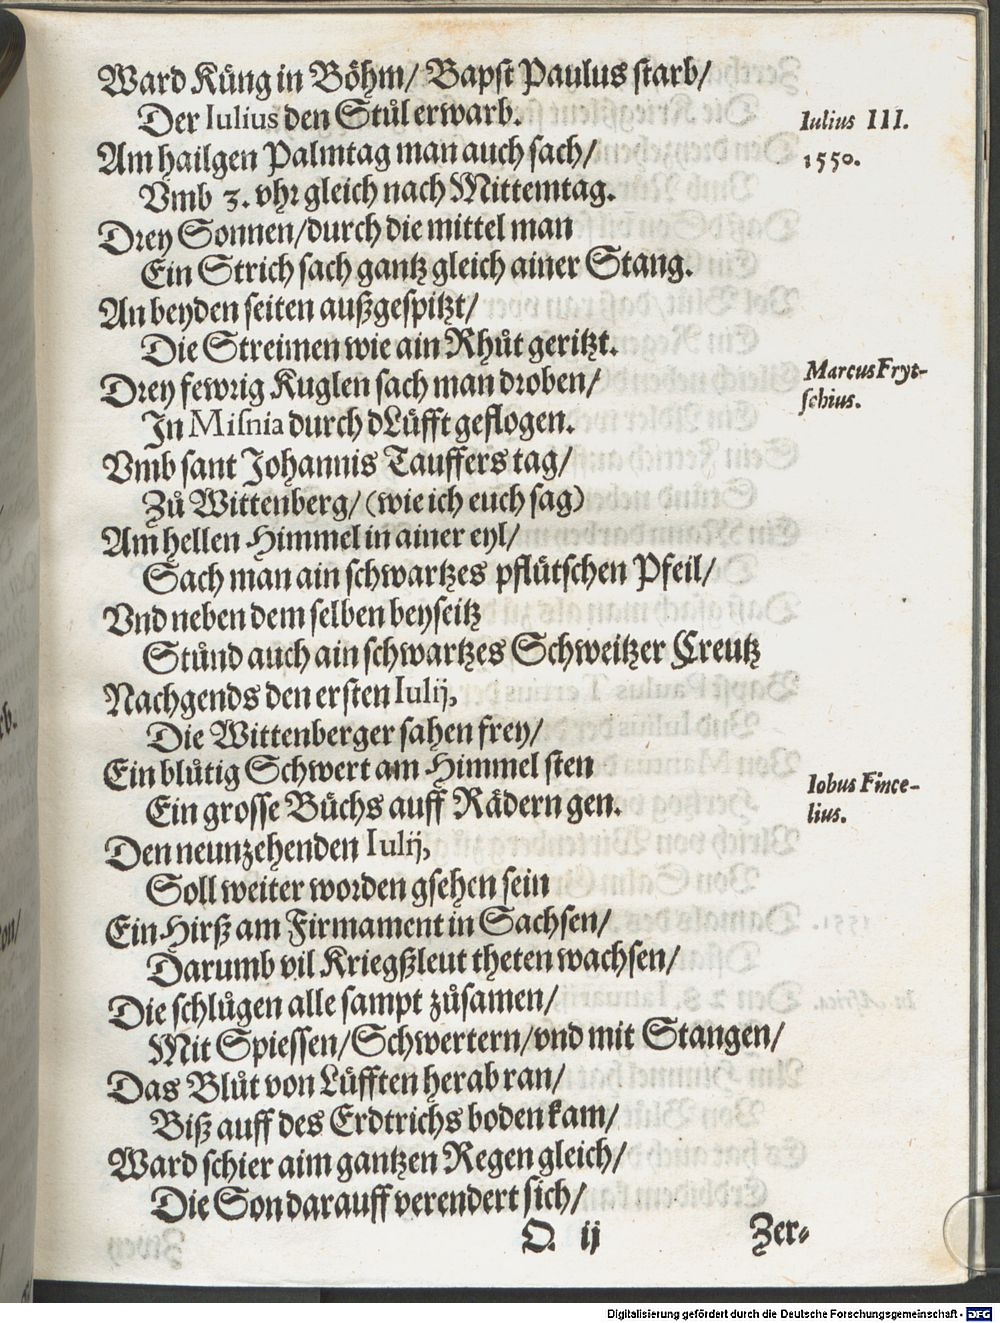 Ward Küng in Böhm/ Bapst Paulus starb/
Der Iulius den Stůl erwarb.
Iulius III.
Am hailgen Palmtag man auch sach/
1550.
Vmb 3. vhr gleich nach Mittemtag.
Drey Sonnen/durch die mittel man
Ein Strich sach gantz gleich ainer Stang.
An beyden seiten außgespitzt/
Die Streimen wie ain Rhůt geritzt.
Drey fewrig Kuglen sach man droben/
Marcus Fryt-
schius.
In Misnia durch dLüfft geflogen.
Vmb sant Johannis Tauffers tag/
Zů Wittenberg/ (wie ich euch sag)
Am hellen Himmel in ainer eyl/
Sach man ain schwartzes pflütschen Pfeil/
Vnd neben dem selben beyseitz
Stůnd auch ain schwartzes Schweitzer Creutz
Nachgends den ersten Iulij,
Die Wittenberger sahen frey/
Ein blůtig Schwert am Himmel sten
Iobus Fince-
lius.
Ein grosse Büchs auff Rädern gen.
Den neunzehenden Iulij,
Soll weiter worden gsehen sein
Ein Hirß am Firmament in Sachsen/
Darumb vil Kriegßleut theten wachsen/
Die schlůgen alle sampt zůsamen/
Mit Spiessen/Schwertern/vnd mit Stangen/
Das Blůt von Lüfften herab ran/
Biß auff des Erdtrichs boden kam/
Ward schier aim gantzen Regen gleich/
Die Son darauff verendert sich/
O ij
Zer-
Digitalisierung gefördert durch die Deutsche Forschungsgemeinschaft - DFG